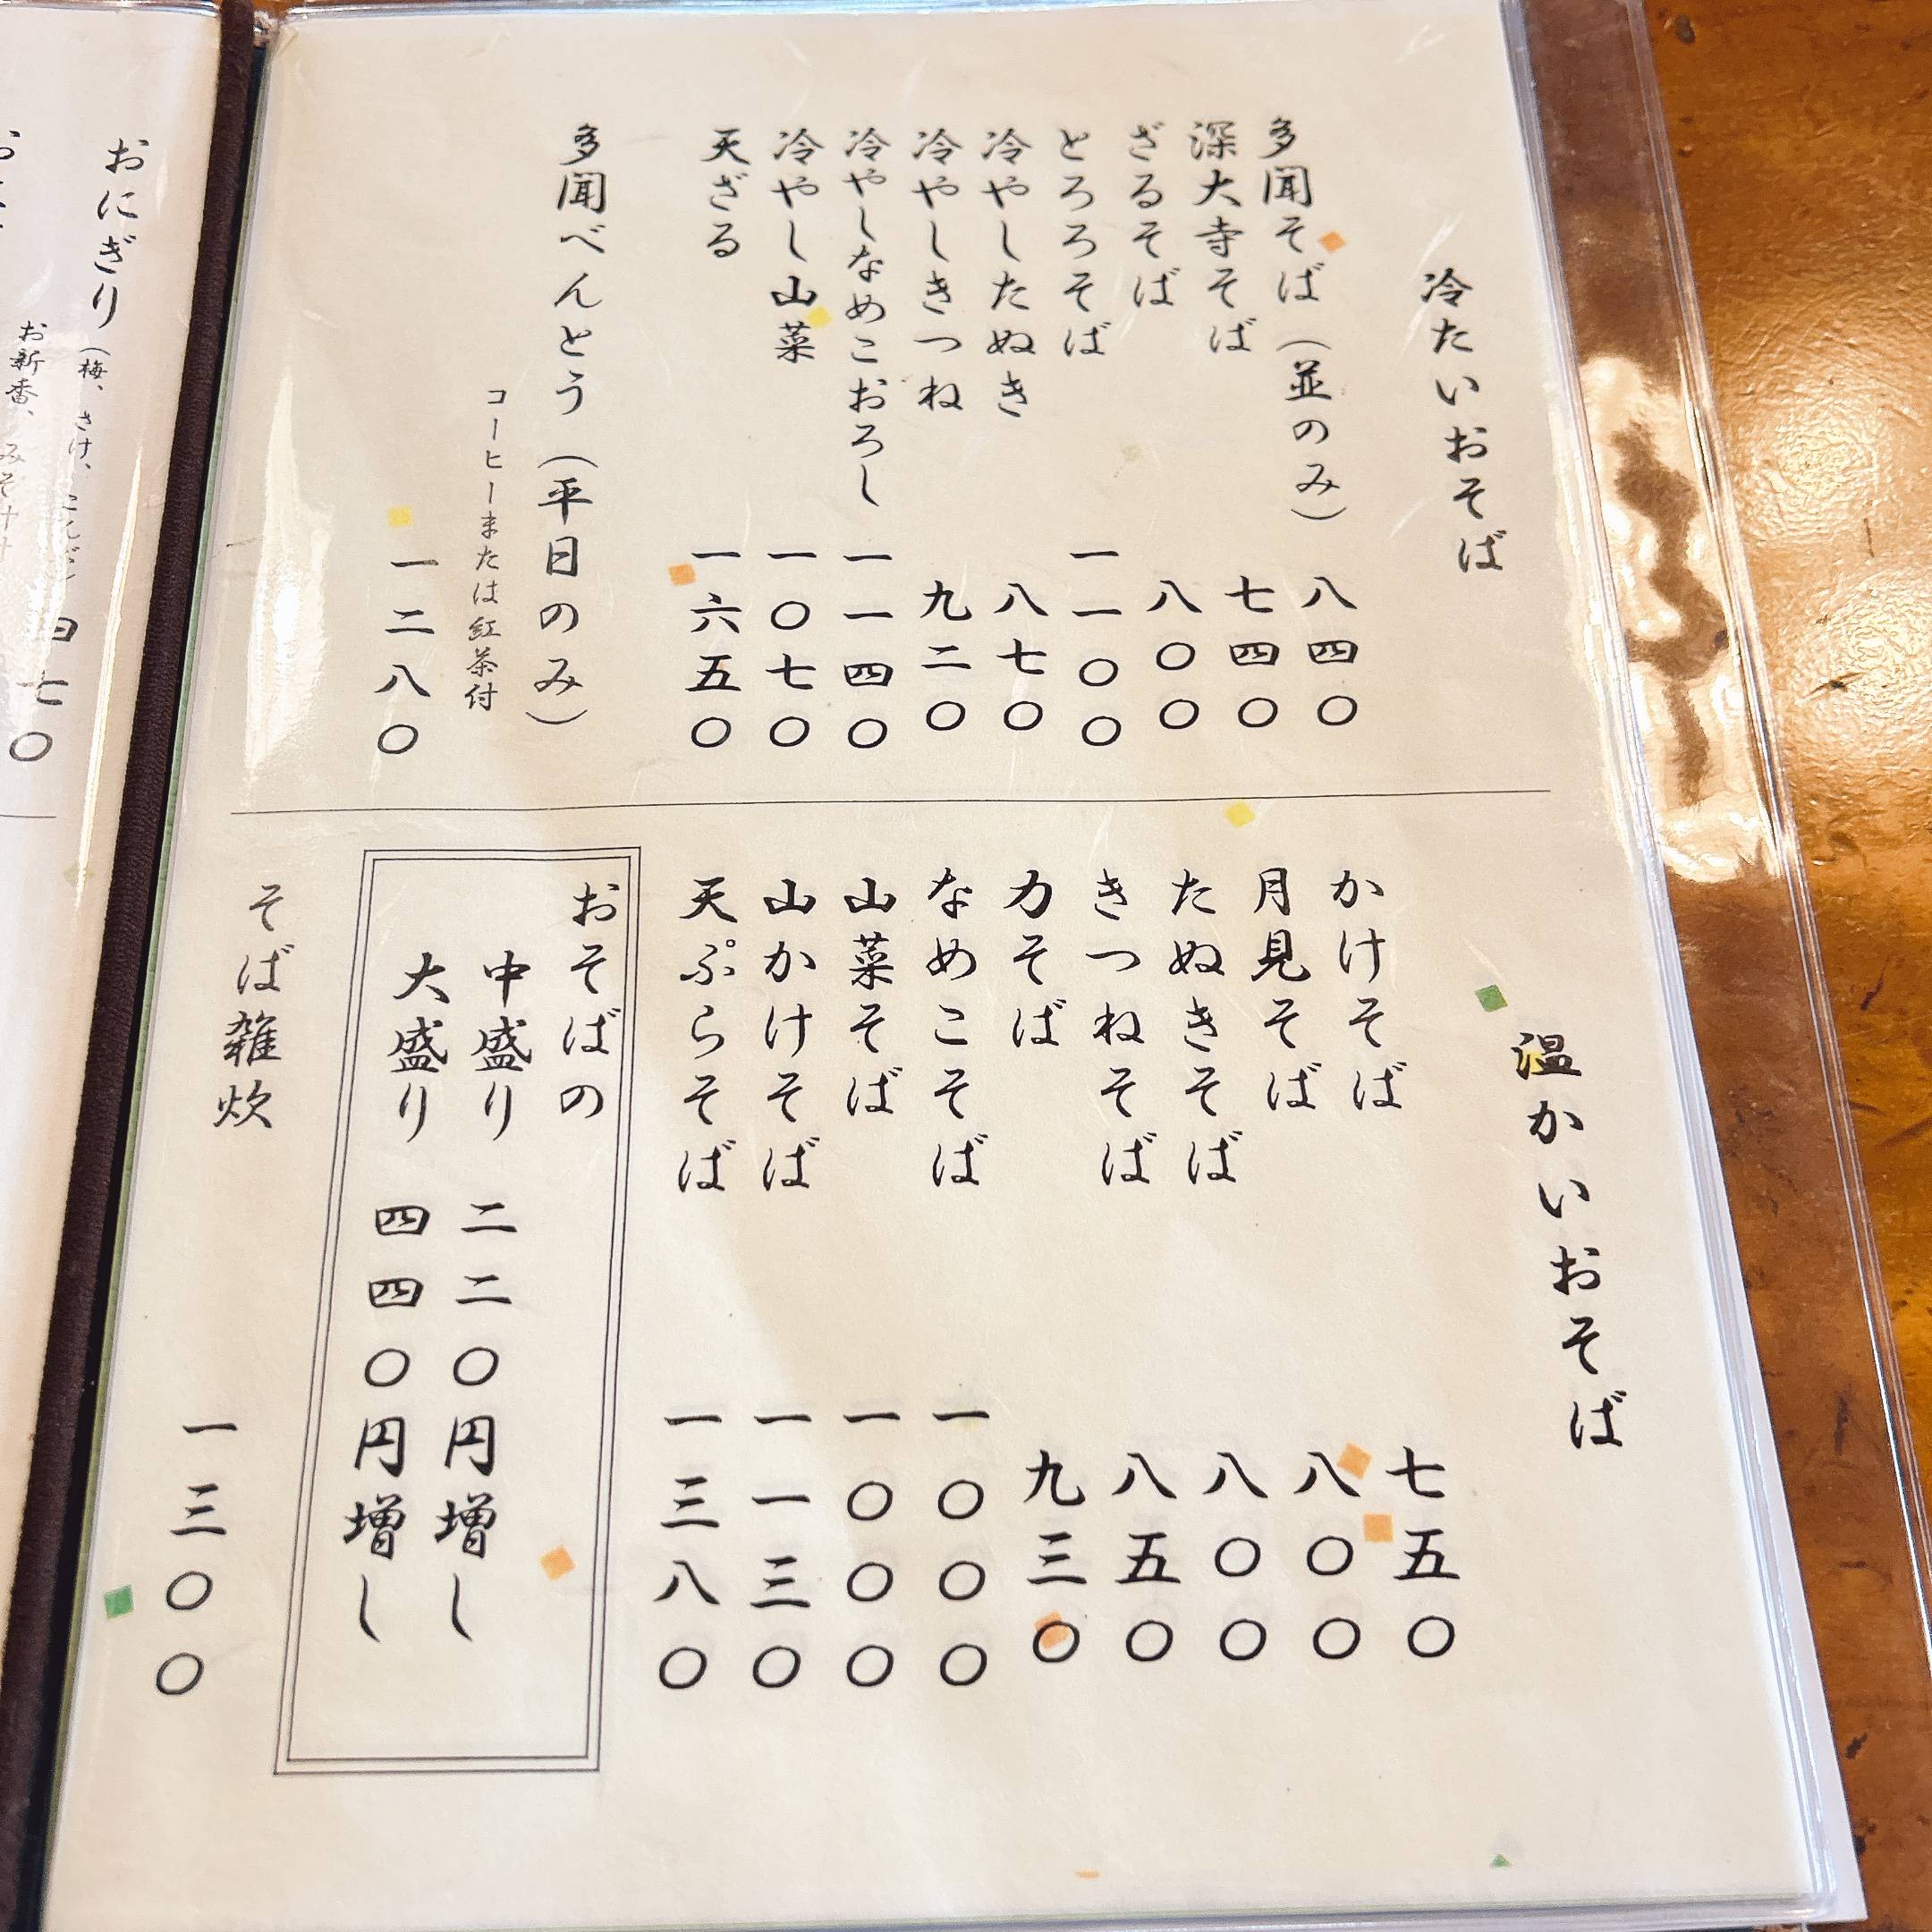 冷たいおそば
多聞そば（並のみ） 八四〇
深大寺そば 七四〇
ざるそば 八〇〇
とろろそば 一一〇〇
冷やしたぬき 八七〇
冷やしきつね 九二〇
冷やしなめこおろし 一一四〇
冷やし山菜 一〇七〇
天ざる 一六五〇
多聞べんとう（平日のみ）
コーヒーまたは紅茶付
一二八〇
温かいおそば
かけそば 七五〇
月見そば 八〇〇
たぬきそば 八〇〇
きつねそば 八五〇
力そば 九三〇
なめこそば 一〇〇〇
山菜そば 一〇〇〇
山かけそば 一一三〇
天ぷらそば 一三八〇
おそばの
中盛り 二二〇円増し
大盛り 四四〇円増し
そば雑炊 一三〇〇
おにぎり（梅、さけ、
お新香、みそ
四七〇